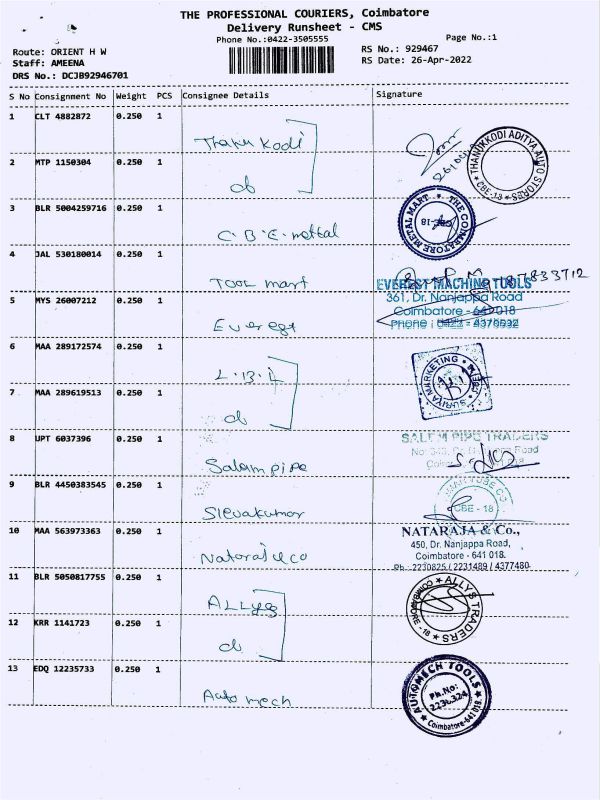 THE PROFESSIONAL COURIERS, Coimbatore
Delivery Runsheet - CMS
Phone No.:0422-3505555
Page No.:1
Route: ORIENT H W
RS No.: 929467
Staff: AMEENA
RS Date: 26-Apr-2022
DRS No.: DCJB92946701
S No Consignment No Weight PCS Consignee Details Signature
1 CLT 4882872 0.250 1 Thanukodi
THANUKKODI ADITYA AUTO STORES CBE-18
2 MTP 1150304 0.250 1 do
3 BLR 5004259716 0.250 1 C.B.E. mettal
THE COIMBATORE METAL MART CBE-18
4 JAL 530180014 0.250 1 TOOL mart
5 MYS 26007212 0.250 1 Everest
EVEREST MACHINE TOOLS
361, Dr. Nanjappa Road
Coimbatore - 641 018
Phone : 0422 - 4376532
6 MAA 289172574 0.250 1
SURIYA MARKETING
7 MAA 289619513 0.250 1 do
8 UPT 6037396 0.250 1 Salam pipe
SALEM PIPE TRADERS
9 BLR 4450383545 0.250 1 Sievakumar
CBE - 18
10 MAA 563973363 0.250 1 Nataraj & co
NATARAJA & Co.,
450, Dr. Nanjappa Road,
Coimbatore - 641 018.
Ph : 2230825 / 2231489 / 4377480
11 BLR 5050817755 0.250 1 ALLys
ALLYS TRADERS COIMBATORE - 18
12 KRR 1141723 0.250 1 do
13 EDQ 12235733 0.250 1 Auto mech
AUTOMECH TOOLS
Ph.No:
2236324
Coimbatore-641 018.